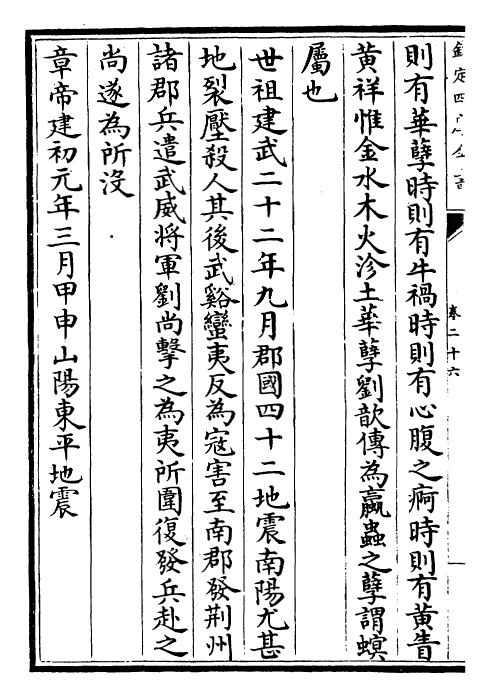 欽定四庫全書
卷二十六
則有華孽時則有牛禍時則有心腹之痾時則有黃眚
黃祥惟金水木火沴土華孽劉歆傳為蠃蟲之孽謂螟
屬也
世祖建武二十二年九月郡國四十二地震南陽尤甚
地裂壓殺人其後武谿蠻夷反為寇害至南郡發荆州
諸郡兵遣武威将軍劉尚擊之為夷所圍復發兵赴之
尚遂為所没
章帝建初元年三月甲申山陽東平地震